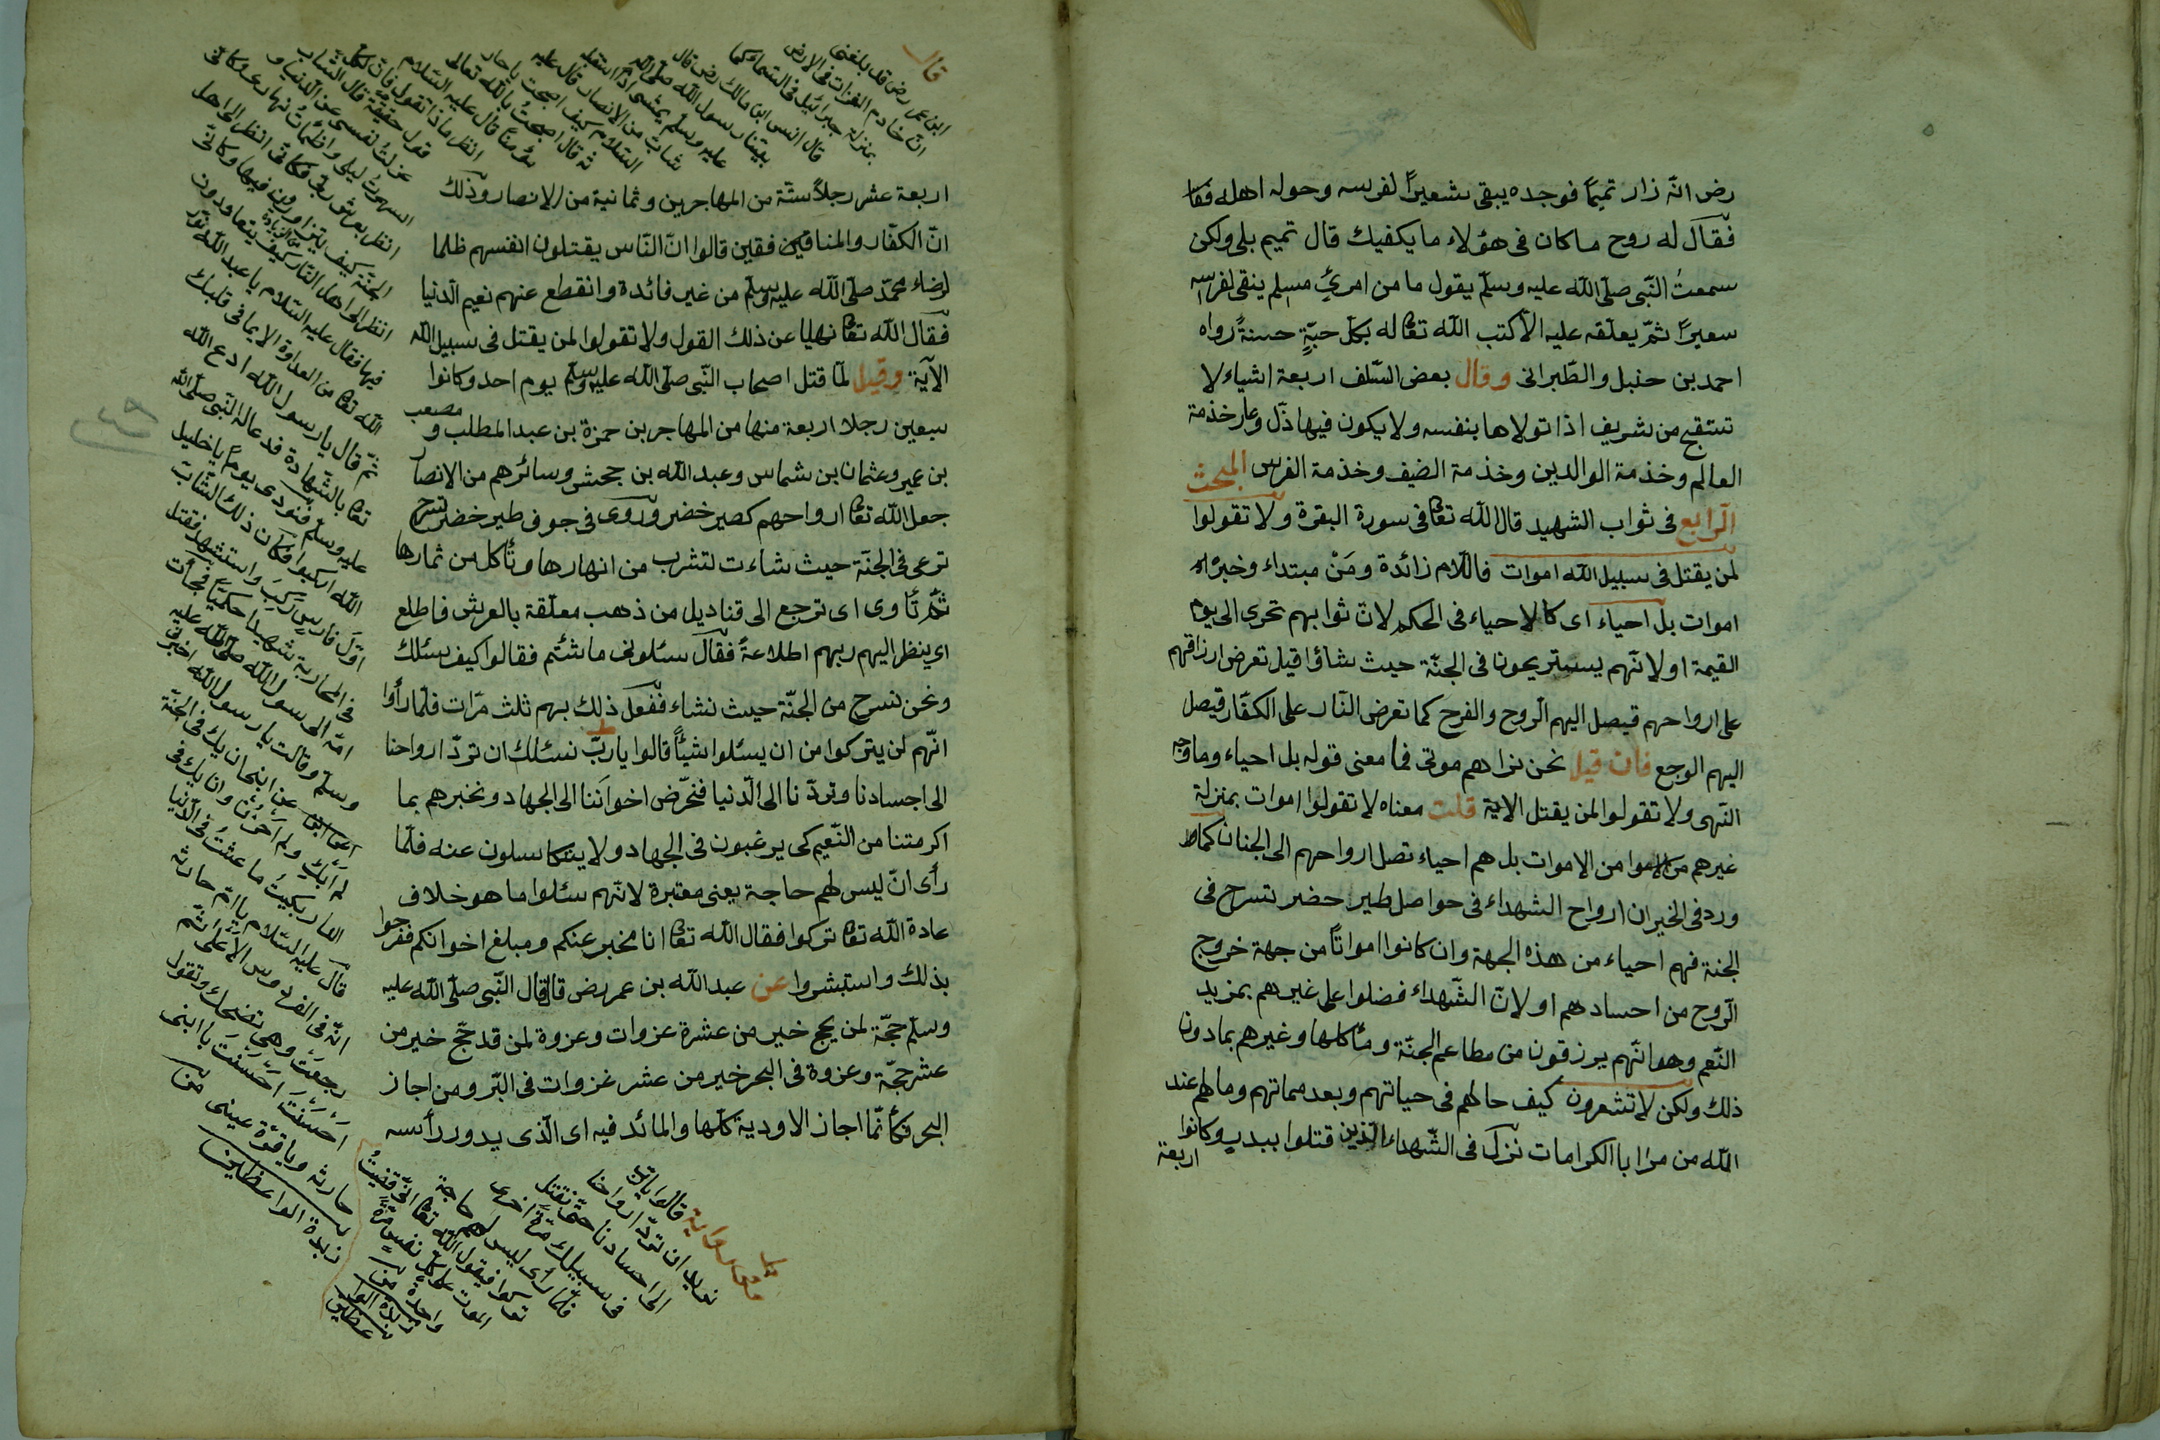 رض انّه زار تميمًا فوجده يبقى شعيرًا لفرسه وحوله اهله فقا
فقال له روح ماكان فى هؤلاء ما يكفيك قال تميم بلى ولكن
سمعتُ النّبى صلّى الله عليه وسلّم يقول ما من امرئٍ مسلم ينقى لفرسه
سعيرًا ثمّ يعلّقه عليه الّا كتب الله تعا له بكلّ حبّةٍ حسنةً رواه
احمد بن حنبل والطّبرانى وقال بعض السّلف اربعة اشياء لا
تستقبح من شريف اذا تولاها بنفسه ولا يكون فيها ذلّ وعار خذمة
العالم وخذمة الوالدين وخذمة الضيف وخذمة الفرس المبحث
الرّابع فى ثواب الشهيد قال الله تعا فى سورة البقرة ولا تقولوا
لمن يقتل فى سبيل الله اموات فاللّام زائدة ومَنْ مبتداء وخبره
اموات بل احياء اى كالاحياء فى الحكم لانّ ثوابهم تحرى الى يوم
القيمة او لانّهم يستريحون فى الجنّة حيث شاؤا قيل تعرض ارزاقهم
على ارواحهم فيصل اليهم الرّوح والفرح كما تعرض النّار على الكفّار فيصل
اليهم الوجع فان قيل نحن نراهم موتى فما معنى قوله بل احياء وما وجه
النّهى ولا تقولوا لمن يقتل الاية قلت معناه لا تقولوا اموات بمنزلة
غيرهم من الاموات بل هم احياء تصل ارواحهم الى الجنان كما
ورد فى الخبر ان ارواح الشهداء فى حواصل طير حضر تسرح فى
الجنة فهم احياء من هذه الجهة وان كانوا امواتًا من جهة خروج
الرّوح من احسادهم او لانّ الشّهداء فضلوا على غيرهم بمزيد
النّعم وهو انّهم يرزقون من مطاعم الجنّة ومأكلها وغيرهم بما دون
ذلك ولكن لا تشعرون كيف حالهم فى حياتهم وبعد مماتهم وما لهم عند
الله من مزايا الكرامات نزل فى الشّهداء الّذين قتلوا ببدر وكانوا
اربعة
اربعة عشر رجلًا ستّة من المهاجرين وثمانية من الانصار وذلك
انّ الكفّار والمنافقين فقين قالوا انّ النّاس يقتلون انفسهم ظلما
لرضاء محمّد صلّى الله عليه وسلّم من غير فائدة وانقطع عنهم نعيم الدّنيا
فقال الله تعا نهيا عن ذلك القول ولا تقولوا لمن يقتل فى سبيل الله
الآية وقيل لمّا قتل اصحاب النّبى صلّى الله عليه وسلّم يوم احد وكانوا
سبعين رجلا اربعة منها من المهاجرين حمزة بن عبد المطلب و مصعب
بن عمير وعثمان بن شماس وعبد الله بن جحش وسائرهم من الانصار
جعل الله تعا ارواحهم كصير خضر وروى فى جوف طير خضر تسرح
ترعى فى الجنّة حيث شاءت لتشرب من انهارها وتأكل من ثمارها
ثمّ تأوى اى ترجع الى قناديل من ذهب معلّقة بالعرش فاطلع
اى ينظر اليهم ربهم اطلاعةً فقال سئلونى ما شئتم فقالوا كيف نسئلك
ونحن نسرح من الجنّة حيث نشاء ففعل ذلك بهم ثلث مرّات فلمّا رأوا
انّهم لن يتركوا من ان يسئلوا شيئًا قالوا يا ربّ نسئلك ان تردّ ارواحنا
الى اجسادنا وتردّنا الى الدّنيا فنحرّض اخواننا الى الجهاد ونخبرهم بما
اكرمتنا من النّعيم كى يرغبون فى الجهاد ولا يتكاسلون عنه فلمّا
رأى انّ ليس لهم حاجة يعنى معتبرة لانّهم سئلوا ما هو خلاف
عادة الله تعا تركوا فقال الله تعا انا مخبر عنكم ومبلغ اخوانكم ففرحوا
بذلك واستبشروا عن عبد الله بن عمر رض قال قال النّبى صلّى الله عليه
وسلّم حجّة لمن يحج خير من عشرة عزوات وعزوة لمن قد حجّ خير من
عشر حجّة وعزوة فى البحر خير من عشر غزوات فى البّر ومن اجاز
البحر فكأنّما اجاز الاودية كلّها والمائد فيه اى الّذى يدور رأسه
قال
ابن عمر رض قد بلغنى
انّ خادم الغزات فى الارض
بمنزلة جبرائيل فى السّماء كما
قال انس ابن مالك رض قال
بينا رسول الله صلّى الله
عليه وسلّم يمشى اذا استقبله
شابّ من الانصار قال عليه
السّلام كيف اصبحت يا حار
ثه قال اصبحتُ بالله تعالى
مؤمنًا قال عليه السّلام
انظر ماذا تقول فانّ لكلّ
قول حقيقة قال الشّاب
عزلتُ نفسى عن الدّنيا و
اسهرتُ ليلى واظمأتُ نهارى وكانّى
انظر بعرش ربّى وكانّى انظر الى اهل
الجنّة كيف يتزاورون فيها وكانّى
انظر الى اهل النّار كيف يتعاودون
فيها فقال عليه السّلام يا عبد الله نوّر
الله تعا من العداوة الايما فى قلبك
ثمّ قال يا رسول الله ادع الله
تعا بالشّهادة فدعا له النّبى صلّى الله
عليه وسلّم فنودى يومًا يا خليل
الله اركبوا فكان ذلك الشّابّ
اوّل فارسٍ ركب واستشهد فقتل
فى المحاربة شهيدا حكيًا فجأت
امّه الى رسول الله صلّى الله عليه
وسلّم وقالت يا رسول الله اخبرنى
عن ابنى ان يك فى الجنّة
لم ابك ولم احزن وان يك فى
النار بكيتُ ما عشتُ فى الدّنيا
قال عليه السّلام يا امّ حارثة
انّه فى الفردوس الاعلى ثمّ
رجعت وهى تضحك وتقول
احسنت احسنت يا ابنى
حارثه ويا قرّة عينى من
زبدة الواعظين
وفى رواية قالوا يا ربّ
نريد ان تردّ ارواحنا
الى احسادنا حتّى نقتل
فى سبيلك مرّة اخرى
فلمّا رأى ليس لهم حاجة
تركوا فيقول الله تعا انّى قضيتُ
الموت على كلّ نفسٍ مرّةً
واحدةً من
زبدة الوا
عظين